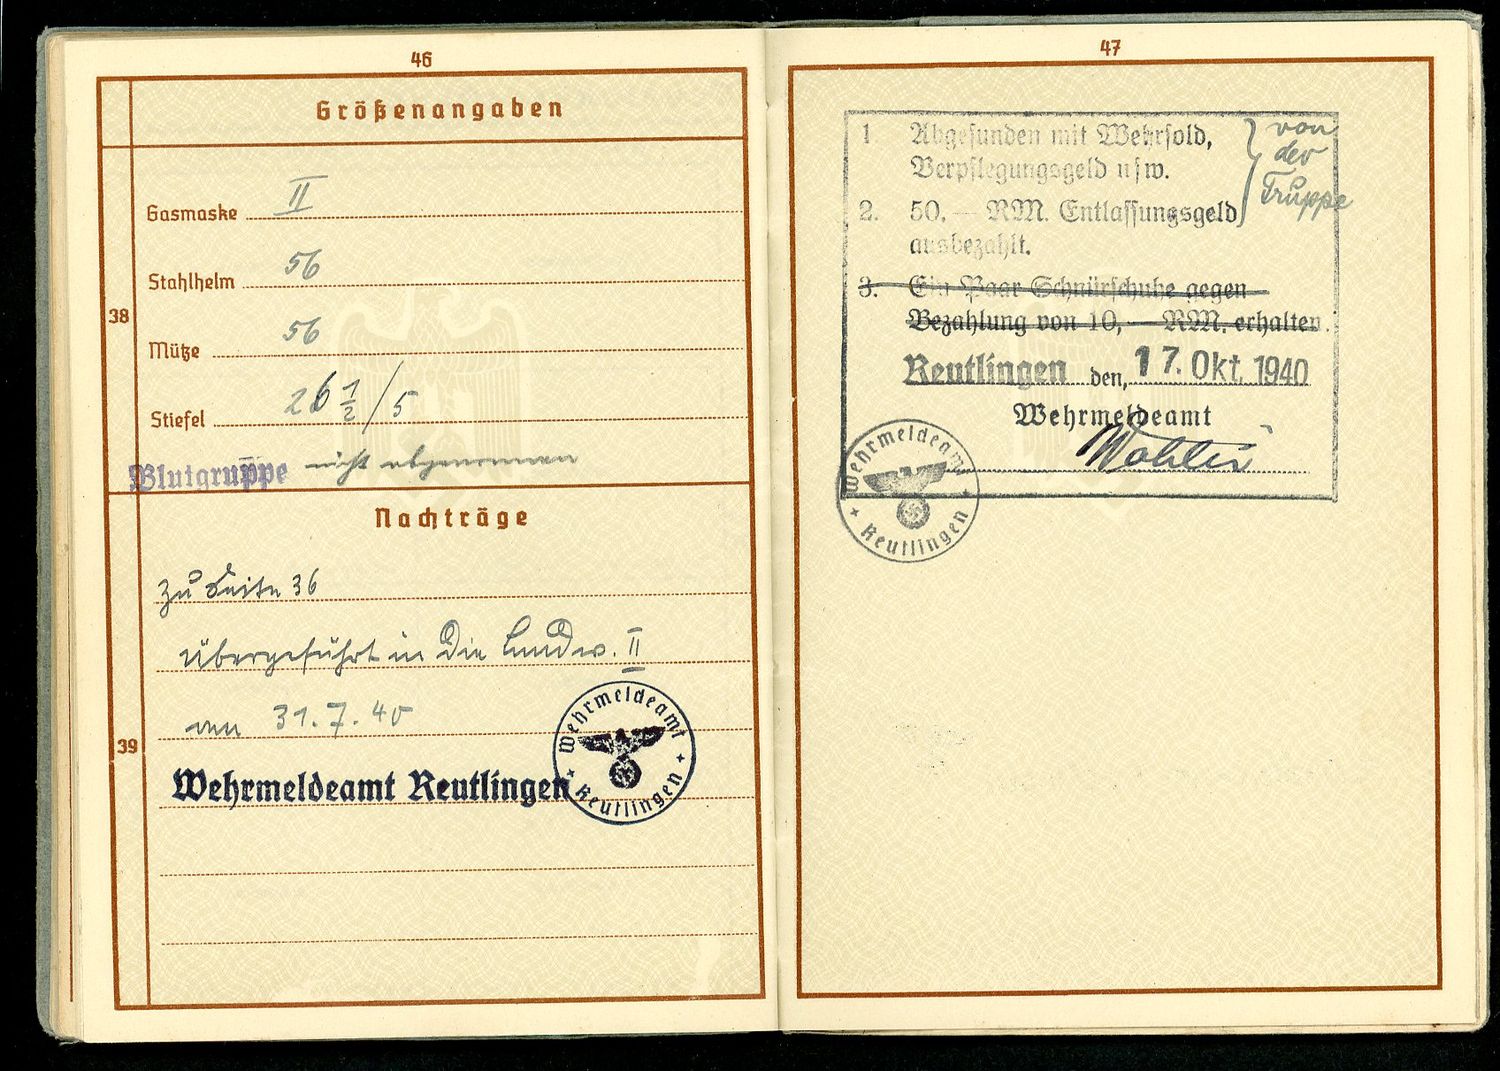 46
Größenangaben
Gasmaske II
Stahlhelm 56
38
Mütze 56
Stiefel 26 1/2 / 5
Blutgruppe nicht abgenommen
Nachträge
zu Seite 36
übergeführt in die Landw. II
am 31.7.40
39
Wehrmeldeamt Reutlingen
Wehrmeldeamt
Reutlingen
47
1 Abgefunden mit Wehrsold,
Verpflegungsgeld usw.
2. 50,— RM. Entlassungsgeld
ausbezahlt.
von
der
Truppe
3. Ein Paar Schnürschuhe gegen
Bezahlung von 10,— RM. erhalten.
Reutlingen den, 17. Okt. 1940
Wehrmeldeamt
Wehrmeldeamt
Reutlingen